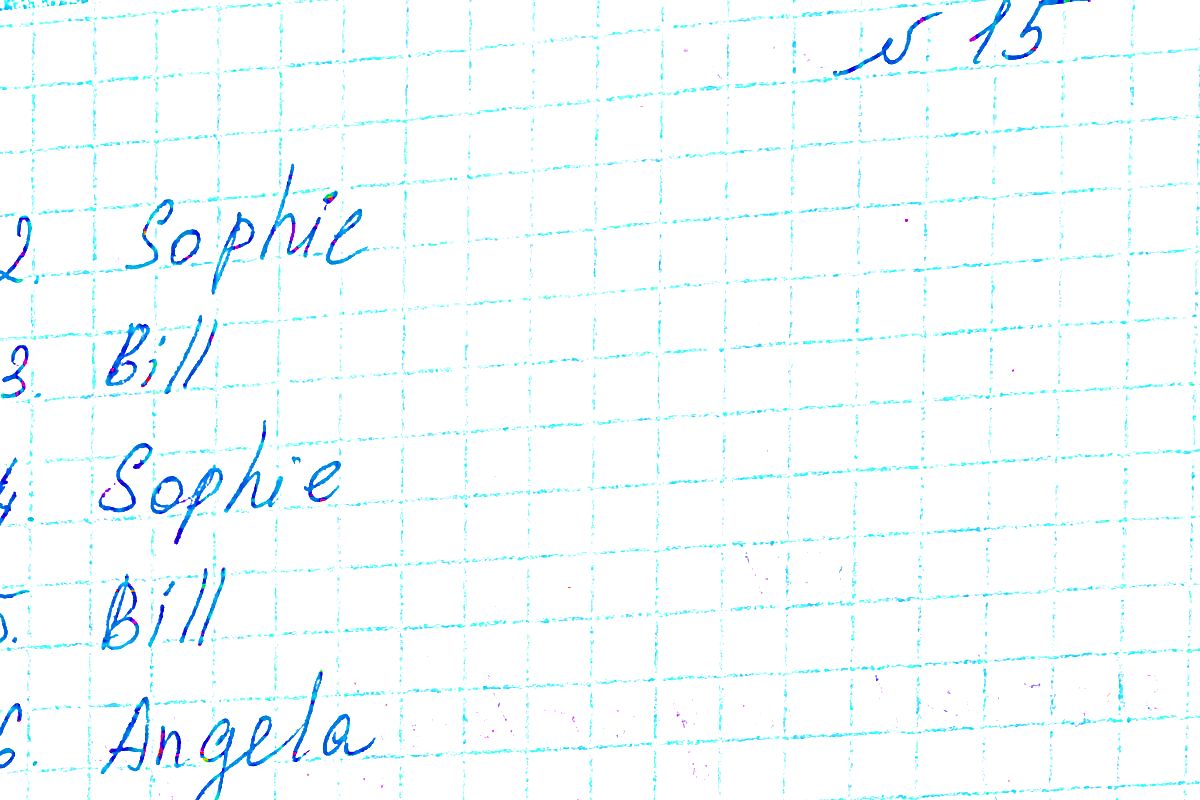 № 15
2. Sophie
3. Bill
4. Sophie
5. Bill
6. Angela